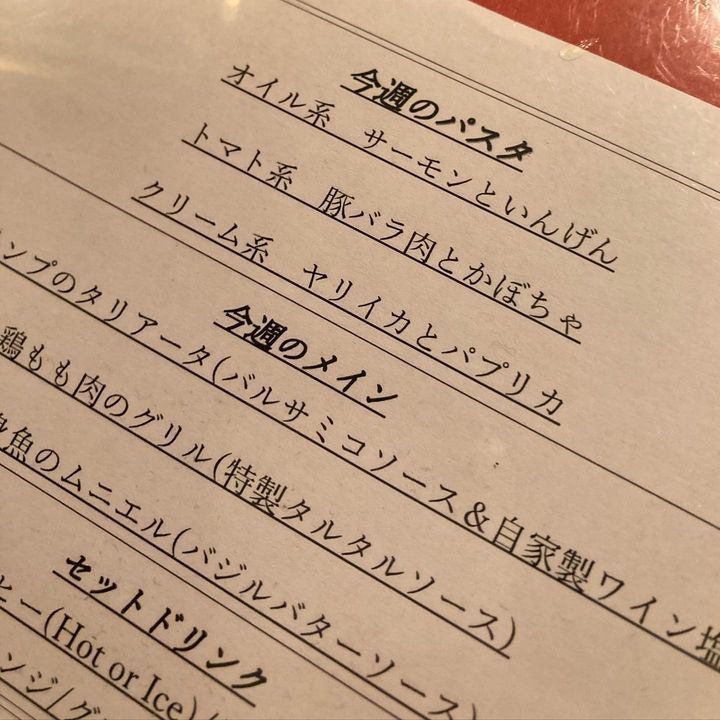 今週のパスタ
オイル系　サーモンといんげん
トマト系　豚バラ肉とかぼちゃ
クリーム系　ヤリイカとパプリカ
今週のメイン
ンプのタリアータ(バルサミコソース＆自家製ワイン塩
鶏もも肉のグリル(特製タルタルソース)
魚のムニエル(バジルバターソース)
セットドリンク
ヒー(Hot or Ice)
ンジ/グ